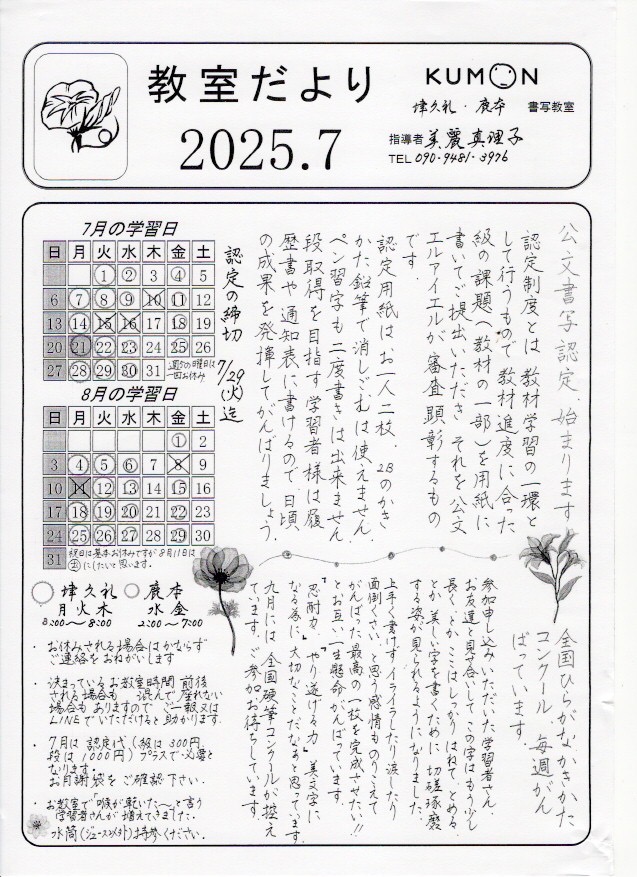 教室だより
2025.7
KUMON
津久礼・鹿本 書写教室
指導者 美麗 真理子
TEL 090-9481-3976
7月の学習日
日 月 火 水 木 金 土
1 2 3 4 5
6 7 8 9 10 11 12
13 14 15 16 17 18 19
20 21 22 23 24 25 26
27 28 29 30 31
週5の日曜日は
一回お休み
認定の締切 7/29(火)迄
8月の学習日
日 月 火 水 木 金 土
1 2
3 4 5 6 7 8 9
10 11 12 13 14 15 16
17 18 19 20 21 22 23
24 25 26 27 28 29 30
31
祝日は基本お休みですが8月11日は
㊏にしたいと思います。
津久礼 鹿本
月火木 水金
3:00〜8:00 2:00〜7:00
・お休みされる場合はかならず
ご連絡をおねがいします
・決まっているお教室時間 前後
される場合も 混んで座れない
場合もありますので ご一報又は
LINEでいただけると助かります.
・7月は 認定代(級は300円
段は1000円)プラスで必要と
なります。
お月謝袋をご確認下さい.
・お教室で"喉が乾いた〜"と言う
学習者さんが増えてきました.
水筒(ジュース以外)は持参ください.
公文書写認定.始まります
認定制度とは 教材学習の一環と
して行うもので 教材進度に合った
級の課題(教材の一部)を用紙に
書いてご提出いただき それを公文
エルアイエルが審査顕彰するもの
です.
認定用紙はお一人二枚. 2Bのかき
かた鉛筆で消しごむは使えません.
ペン習字も二度書きは出来ません
段取得を目指す学習者様は履
歴書や通知表に書けるので 日頃
の成果を発揮してがんばりましょう.
全国ひらがなかきかた
コンクール 毎週がん
ばっています.
参加申し込みいただいた学習者さん.
お友達と見せ合いして この字はもう少し
長く とか ここはしっかりはねて とめる.
とか 美しい字を書くために 切磋琢磨
する姿が見られるようになりました.
上手く書けずイライラしたり涙したり
面倒くさい と思う感情ものりこえて
がんばった最高の一枚を完成させたい!!
とお互い一生懸命がんばっています.
「忍耐力」「やり遂げる力」 美文字に
なる為に 大切なことだなぁと思っています.
九月には 全国硬筆コンクールが控え
ています. ご参加お待ちしています.